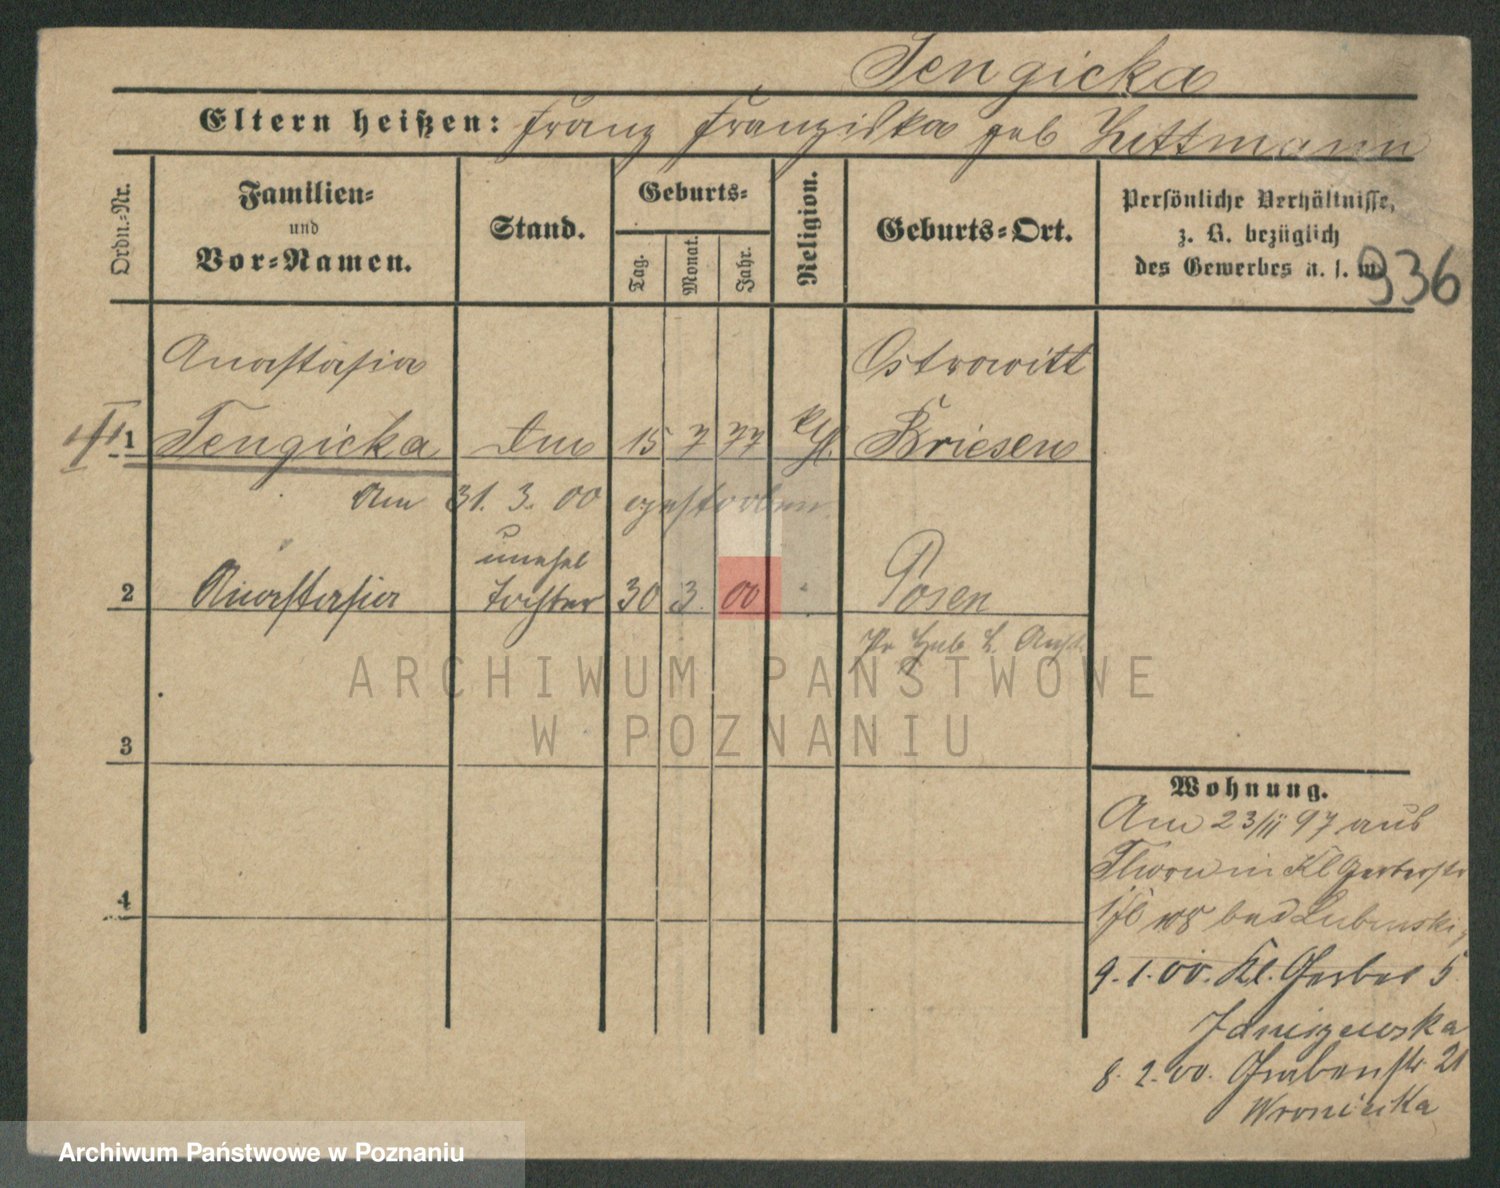 Tengicka
Eltern heißen: Franz Franziska geb Littmann
Ordn.-Nr.
Familien-
und
Vor-Namen.
Stand.
Geburts-
Tag.
Monat.
Jahr.
Religion.
Geburts-Ort.
Persönliche Verhältnisse,
z. B. bezüglich
des Gewerbes u. s. w.
936
Anastasia Ostrowitt
III 1 Tengicka 15 7 77 kth. Briesen
Am 31. 3. 00 gestorben
unehel
2 Anastasia Tochter 30 3. 00 " Posen
3
4
Wohnung.
Am 23/II 97 aus
Thorn in Kl Gerberstr
bei Lubinski
9. 1. 00. Kl. Gerber 5
Janiszewska
8. 2. 00. Grabenstr. 21
Wroniecka
ARCHIWUM PAŃSTWOWE
W POZNANIU
Archiwum Państwowe w Poznaniu